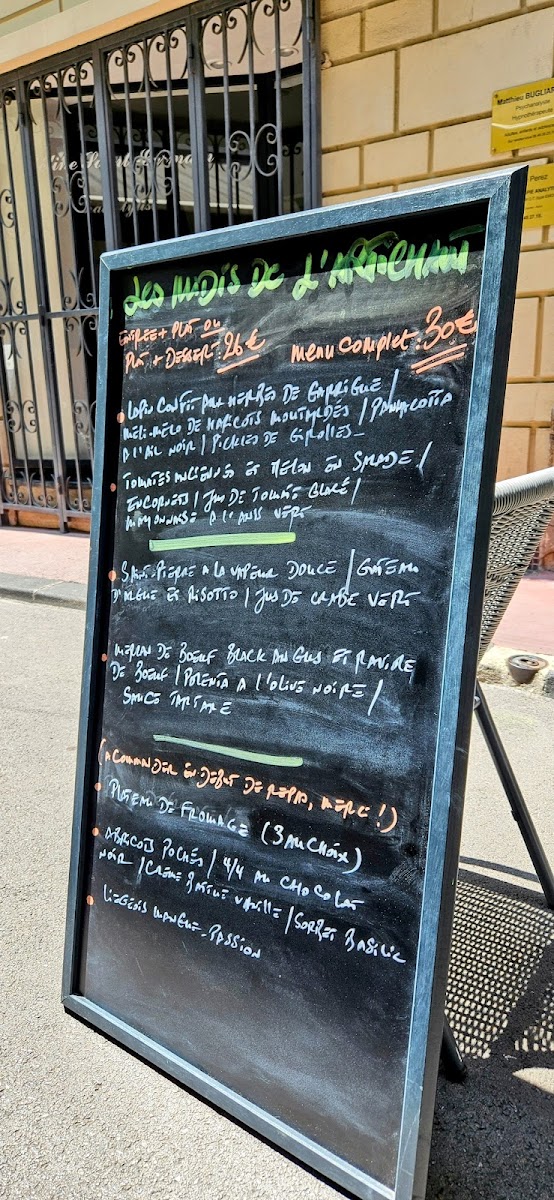 Matthieu BUGLIAR
Psychanalyste
Hypnothérapeute
Perez
LES MIDIS DE L'ARTICHAUT
ENTRÉE + PLAT OU
PLAT + DESSERT : 26 €
MENU COMPLET : 30 €
LAPIN CONFIT AUX HERBES DE GARRIGUE /
MÉLI-MÉLO DE HARICOTS MOUTARDÉS / PANACOTTA
A L'AIL NOIR / PICKLES DE GIROLLES
TOMATES ANCIENNES ET MELON EN SALADE /
ENCORNETS / JUS DE TOMATE GLACÉ /
MAYONNAISE A L'ANIS VERT
SAINT-PIERRE A LA VAPEUR DOUCE / GATEAU
D'ALGUE ET RISOTTO / JUS DE CRABE VERT
MERLAN DE BŒUF BLACK ANGUS ET
DE BŒUF / POLENTA A L'OLIVE NOIRE /
SAUCE TARTARE
(A COMMANDER EN DEBUT DE REPAS, MERCI !)
PLATEAU DE FROMAGE (3 AU CHOIX)
ABRICOTS POCHÉS / 4/4 AU CHOCOLAT
NOIR / CRÈME BATTUE VANILLE / SORBET BASILIC
LIEGEOIS MANGUE-PASSION